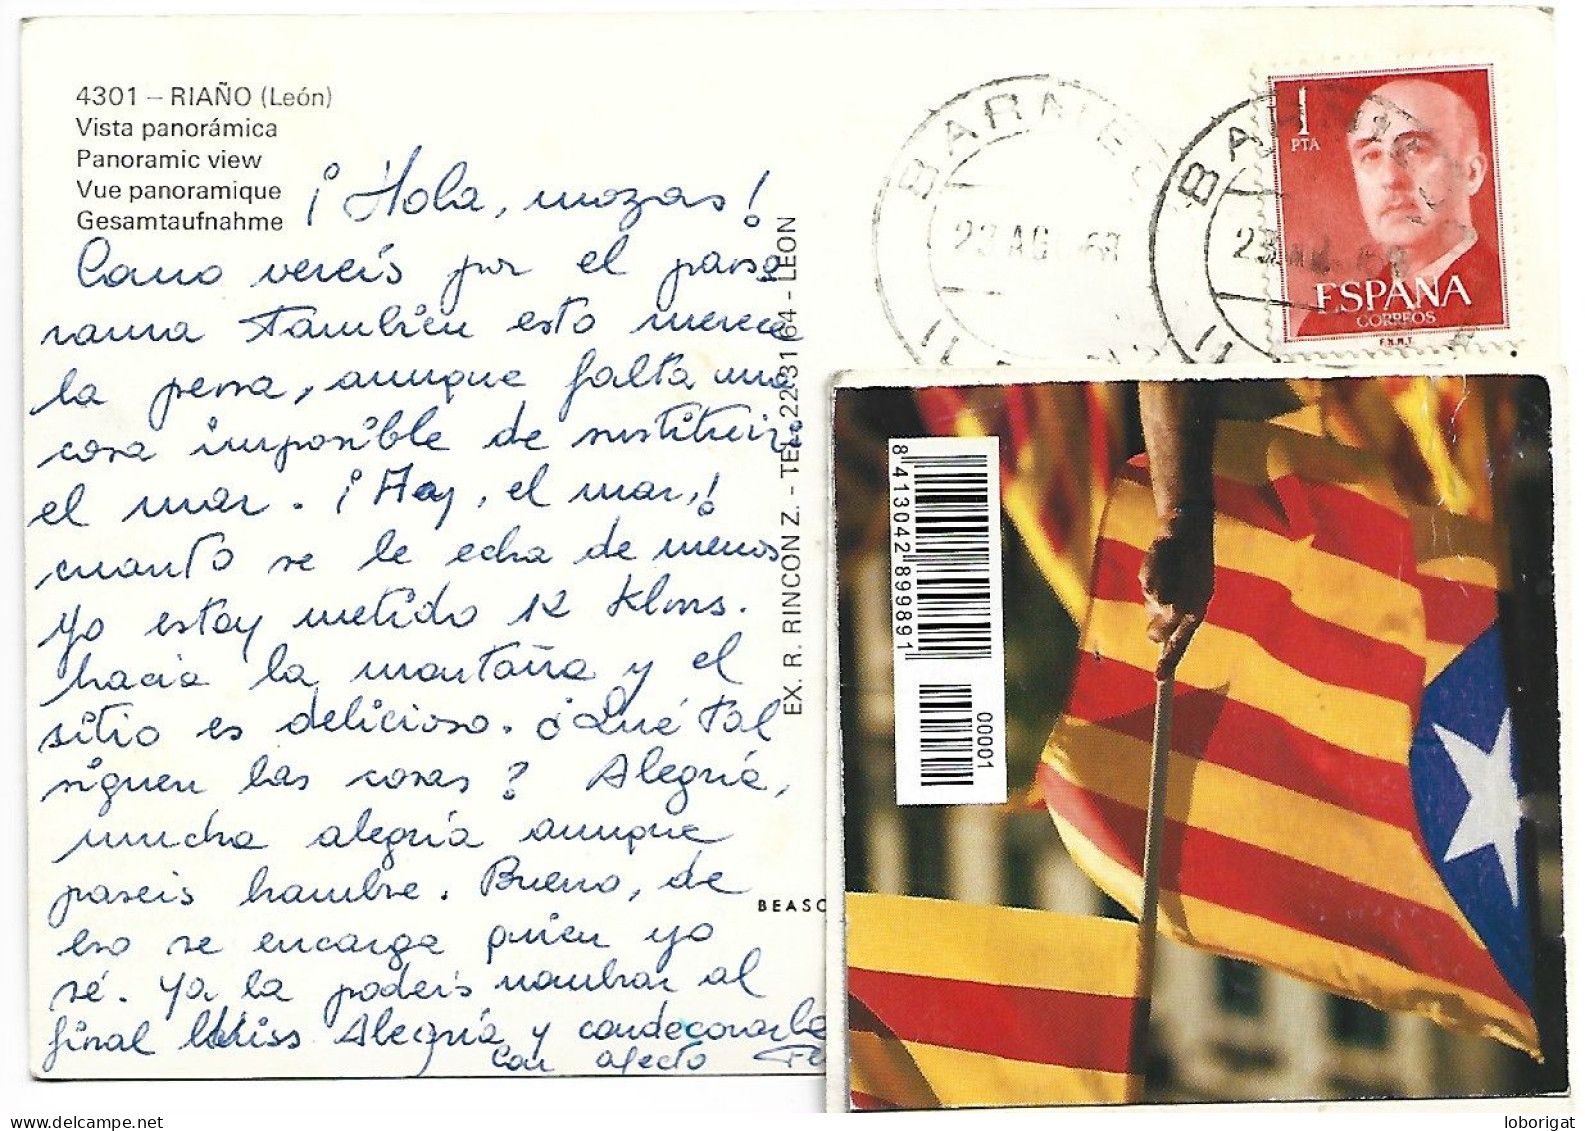 4301 – RIAÑO (León)
Vista panorámica
Panoramic view
Vue panoramique
Gesamtaufnahme
¡Hola, mozas!
Como vereis por el pano
rama también esto merece
la pena, aunque falta una
cosa imposible de sustituir,
el mar. ¡Ay, el mar,!
cuanto se le echa de menos
Yo estoy metido 12 klms.
hacia la montaña y el
sitio es delicioso. ¿Qué tal
siguen las cosas? Alegría,
mucha alegría aunque
paseis hambre. Bueno, de
eso se encarga quien yo
sé. Ya la podeis nombrar al
final Miss Alegría y condecorarla
Con afecto
EX. R. RINCON Z. - TEL. 223164 - LEON
BEASC
23 AGO. 68
1
PTA
ESPAÑA
CORREOS
F.N.M.T.
8413042899891
00001
delcampe.net
loborigat